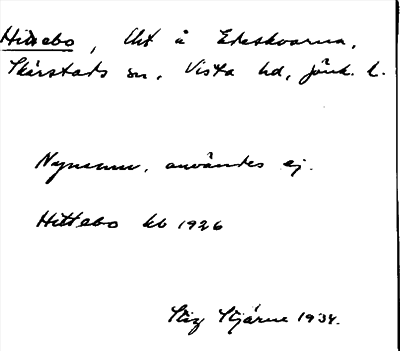 Hittebo, lht å Edeskvarna,
Skärstads sn, Vista hd, Jönk. l.
Nynamn, användes ej.
Hittebo kb 1926
Stig Stjärne 1934.